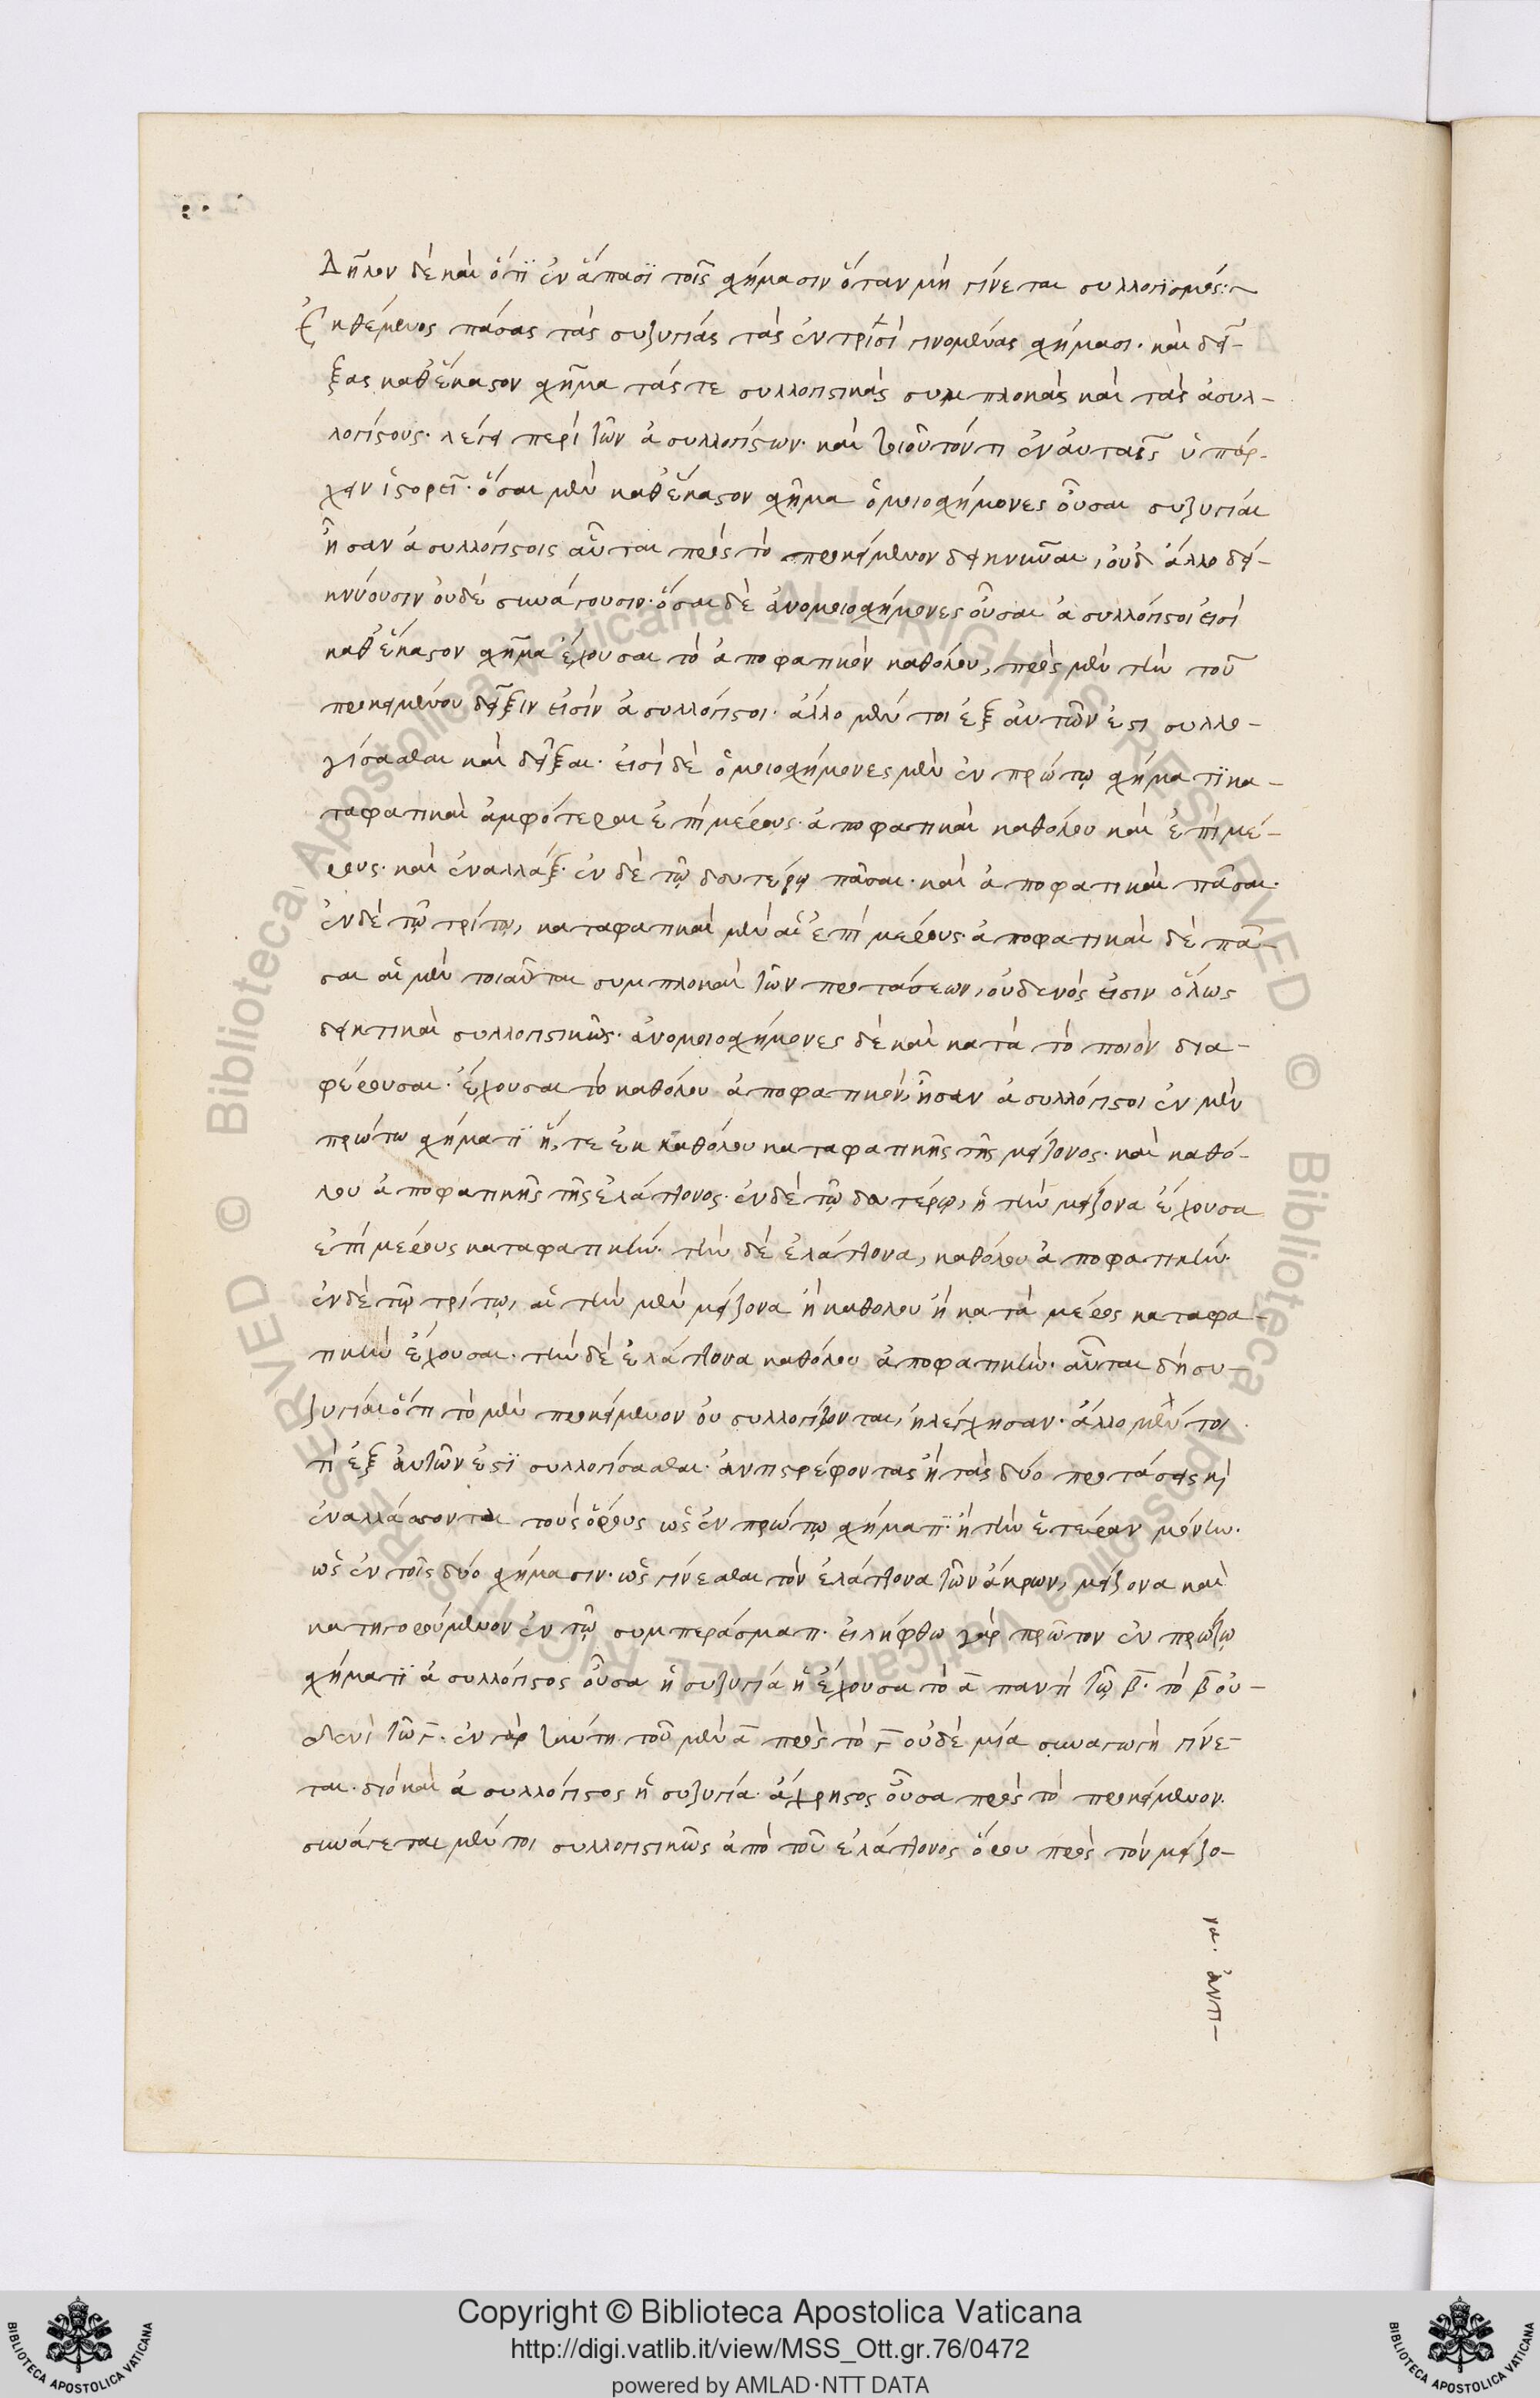 Δῆλον δὲ καὶ ὅτι ἐν ἅπασι τοῖς σχήμασιν ὅταν μὴ γίνεται συλλογισμός:~
Ἐκθέμενος πάσας τὰς συζυγίας τὰς ἐν τρισὶ γινομένας σχήμασι· καὶ δεί-
ξας καθ' ἕκαστον σχῆμα τάς τε συλλογιστικὰς συμπλοκὰς καὶ τὰς ἀσυλ-
λογίστους· λέγει περὶ τῶν ἀσυλλογίστων· καὶ τοιοῦτόν τι ἐν αὐταῖς ὑπάρ-
χειν ἱστορεῖ· ὅσαι μὲν καθ' ἕκαστον σχῆμα ὁμοιοσχήμονες οὖσαι συζυγίαι
ἦσαν ἀσυλλόγιστοις αὗται πρὸς τὸ προκείμενον δεικνῦναι, οὐδ' ἄλλο δει-
κνύουσιν οὐδὲ συνάγουσιν· ὅσαι δὲ ἀνομοιοσχήμονες οὖσαι ἀσυλλόγιστοι εἰσὶ
καθ' ἕκαστον σχῆμα ἔχουσαι τὸ ἀποφατικὸν καθόλου, πρὸς μὲν τὴν τοῦ
προκειμένου δεῖξιν εἰσὶν ἀσυλλόγιστοι· ἄλλο μέν τοι ἐξ αὐτῶν ἐστι συλλο-
γίσασθαι καὶ δεῖξαι· εἰσὶ δὲ ὁμοιοσχήμονες μὲν ἐν πρώτῳ σχήματι κα-
ταφατικαὶ ἀμφότεραι ἐπὶ μέρους· ἀποφατικαὶ καθόλου καὶ ἐπὶ μέ-
ρους· καὶ ἐναλλάξ· ἐν δὲ τῷ δευτέρῳ πᾶσαι· καὶ ἀποφατικαὶ πᾶσαι·
ἐν δὲ τῷ τρίτῳ, καταφατικαὶ μὲν αἱ ἐπὶ μέρους· ἀποφατικαὶ δὲ πᾶ-
σαι αἱ μὲν τοιαῦται συμπλοκαὶ τῶν προτάσεων, οὐδενός εἰσιν ὅλως
δεικτικαὶ συλλογιστικῶς· ἀνομοιοσχήμονες δὲ καὶ κατὰ τὸ ποιὸν δια-
φέρουσαι· ἔχουσαι τὸ καθόλου ἀποφατικόν, ἦσαν ἀσυλλόγιστοι ἐν μὲν
πρώτω σχήματι ἥ, τε ἐκ καθόλου καταφατικῆς τῆς μείζονος· καὶ καθό-
λου ἀποφατικῆς τῆς ἐλάττονος· ἐν δὲ τῷ δευτέρῳ, ἡ τὴν μείζονα ἔχουσα
ἐπὶ μέρους καταφατικήν· τὴν δὲ ἐλάττονα, καθόλου ἀποφατικήν·
ἐν δὲ τῷ τρίτῳ, αἱ τὴν μὲν μείζονα ἢ καθολου ἢ κατὰ μέρος καταφα-
τικὴν ἔχουσαι· τὴν δὲ ἐλάττονα καθόλου ἀποφατικήν· αὗται δὴ συ-
ζυγίαι ὅτι τὸ μὲν προκείμενον οὐ συλλογίζονται, ἠλέγχησαν· ἄλλο μέν τοι
τὶ ἐξ αὐτῶν ἐστι συλλογίσασθαι· ἀντιστρέφοντας ἢ τὰς δύο προτάσεις κὶ
ἐναλλάσσονται τοὺς ὅρους ὡς ἐν πρώτῳ σχήματι· ἢ τὴν ἑτέραν μόνην·
ὡς ἐν τοῖς δύο σχήμασιν· ὡς γίνεσθαι τὸν ἐλάττονα τῶν ἄκρων, μείζονα καὶ
κατηγορούμενον ἐν τῷ συμπεράσματι· εἰλήφθω γὰρ πρῶτον ἐν πρώτῳ
σχήματι ἀσυλλόγιστος οὖσα ἡ συζυγία ἡ ἔχουσα τὸ α̅ παντὶ τῷ β̅· τὸ β̅ οὐ-
δενὶ τῶ γ̅· ἐν γὰρ ταύτῃ τοῦ μὲν α̅ πρὸς τὸ γ̅ οὐδὲ μία συναγωγὴ γίνε-
ται· διὸ καὶ ἀσυλλόγιστος ἡ συζυγία· ἄχρηστος οὖσα πρὸς τὸ προκείμενον·
συνάγεται μέν τοι συλλογιστικῶς ἀπὸ τοῦ ἐλάττονος ὅρου πρὸς τὸν μείζο-
να· ἀντι-
Copyright © Biblioteca Apostolica Vaticana
http://digi.vatlib.it/view/MSS_Ott.gr.76/0472
powered by AMLAD·NTT DATA